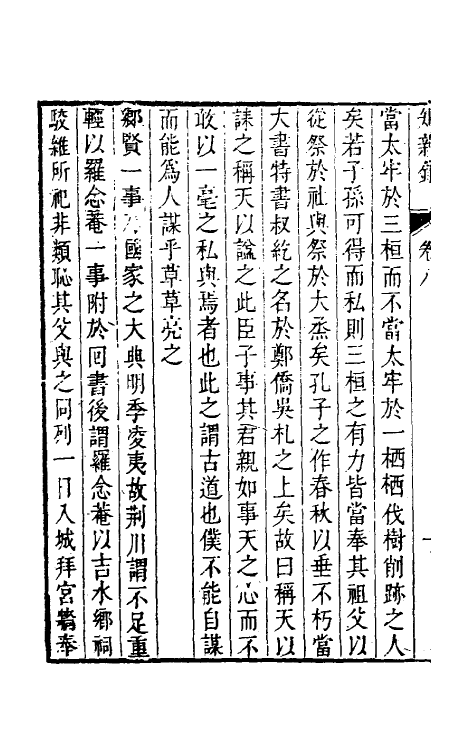 卷八
當太牢於三桓而不當太牢於一栖栖伐樹削跡之人
矣若子孫可得而私則三桓之有力皆當奉其祖父以
從祭於社與祭於大烝矣孔子之作春秋以垂不朽當
大書特書叔紇之名於鄭僑吳札之上矣故曰稱天以
誄之稱天以諡之此臣子事其君親如事天之心而不
敢以一毫之私與焉者也此之謂古道也僕不能自謀
而能爲人謀乎草草亮之
鄉賢一事乃國家之大典明季凌夷故荆川謂不足重
輕以羅念菴一事附於回書後謂羅念菴以吉水鄉祠
駿雜所祀非類恥其父與之同列一日入城拜宮牆奉